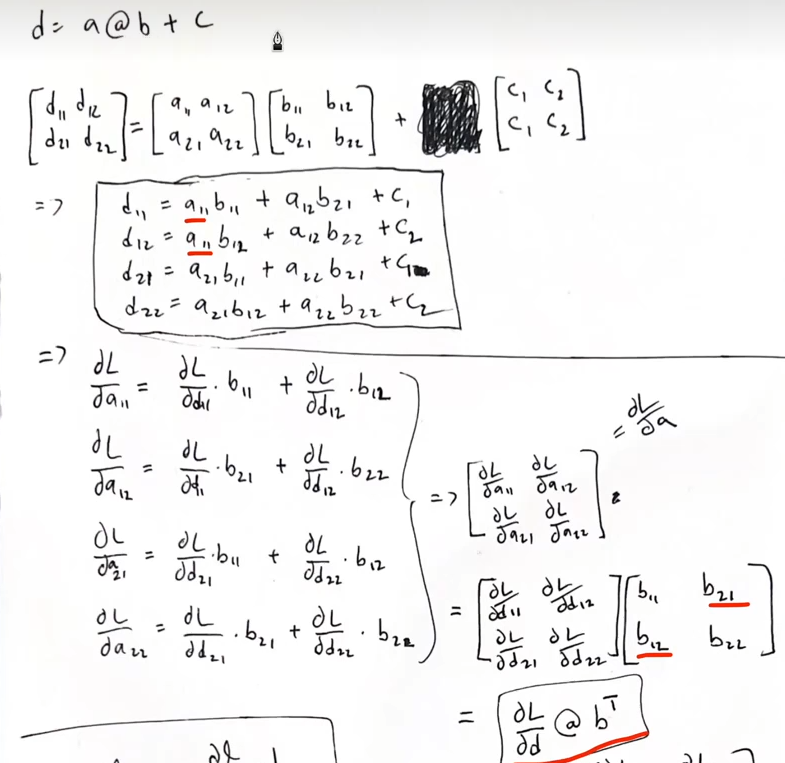 d = a@b + c
[d₁₁ d₁₂; d₂₁ d₂₂] = [a₁₁ a₁₂; a₂₁ a₂₂] [b₁₁ b₁₂; b₂₁ b₂₂] + [c₁ c₂; c₁ c₂]
=> d₁₁ = a₁₁b₁₁ + a₁₂b₂₁ + c₁
d₁₂ = a₁₁b₁₂ + a₁₂b₂₂ + c₂
d₂₁ = a₂₁b₁₁ + a₂₂b₂₁ + c₁
d₂₂ = a₂₁b₁₂ + a₂₂b₂₂ + c₂
=> ∂L/∂a₁₁ = ∂L/∂d₁₁ · b₁₁ + ∂L/∂d₁₂ · b₁₂
∂L/∂a₁₂ = ∂L/∂d₁₁ · b₂₁ + ∂L/∂d₁₂ · b₂₂
∂L/∂a₂₁ = ∂L/∂d₂₁ · b₁₁ + ∂L/∂d₂₂ · b₁₂
∂L/∂a₂₂ = ∂L/∂d₂₁ · b₂₁ + ∂L/∂d₂₂ · b₂₂
= ∂L/∂a
=> [∂L/∂a₁₁ ∂L/∂a₁₂; ∂L/∂a₂₁ ∂L/∂a₂₂]
= [∂L/∂d₁₁ ∂L/∂d₁₂; ∂L/∂d₂₁ ∂L/∂d₂₂] [b₁₁ b₂₁; b₁₂ b₂₂]
= ∂L/∂d @ bᵀ